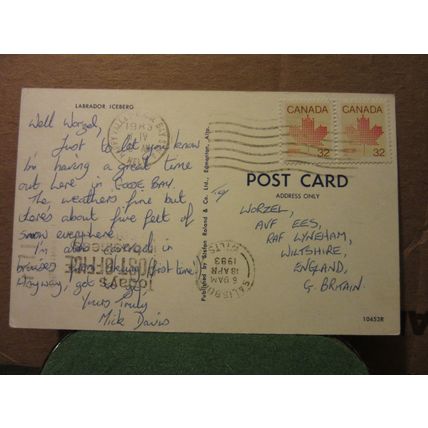 LABRADOR ICEBERG
Well Worzel,
Just to let you know
I'm having a great time
out here in GOOSE BAY.
The weathers fine but
theres about five feet of
snow everywhere.
I'm also covered in
bruises (first time)
Anyway, got to go
Yours Truly
Mick Davis
Published by Stefan Roland & Co. Ltd., Edmonton, Alta.
1983
CANADA
32
CANADA
32
To,
POST CARD
ADDRESS ONLY
WORZEL,
AVF EES,
RAF LYNEHAM,
WILTSHIRE,
ENGLAND,
G. BRITAIN.
SALISBURY
6 30 AM
18 APR
1983
WILTS
POST OFFICE
10453R